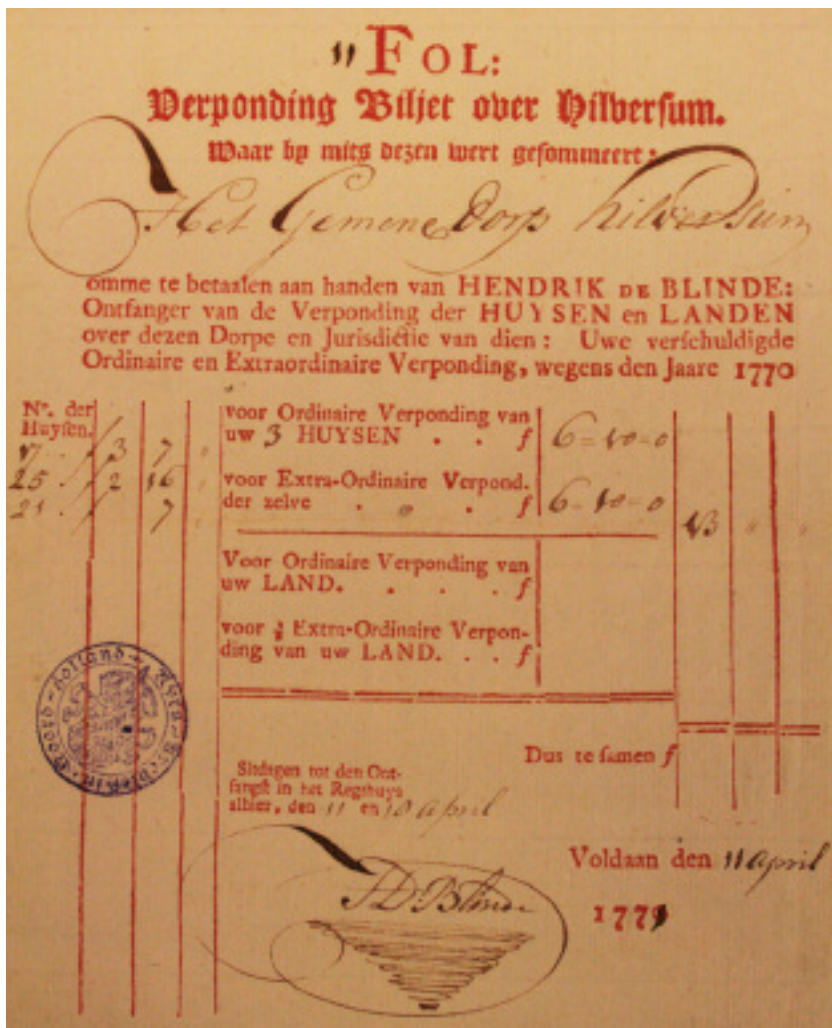 " FOL:
Verponding Biljet over Hilversum.
Waar by mits dezen wert gesommeert:
Het Gemene Dorp hilversum
omme te betaalen aan handen van HENDRIK DE BLINDE:
Ontfanger van de Verponding der HUYSEN en LANDEN
over dezen Dorpe en Jurisdictie van dien: Uwe verschuldigde
Ordinaire en Extraordinaire Verponding, wegens den Jaare 1770
No. der
Huysen.
voor Ordinaire Verponding van
uw 3 HUYSEN . . f 6=10=0
3 7
25 2 16
21 7
voor Extra-Ordinaire Verpond.
der zelve . . . f 6=10=0
13 " "
Voor Ordinaire Verponding van
uw LAND. . . . f
voor Extra-Ordinaire Verpon-
ding van uw LAND. . . f
Dus te samen f
Noord-Holland
Sitdagen tot den Ont-
fangst in het Regthuys
alhier, den 11 en 10 april
Voldaan den 11 april
1771
HD: Blinde